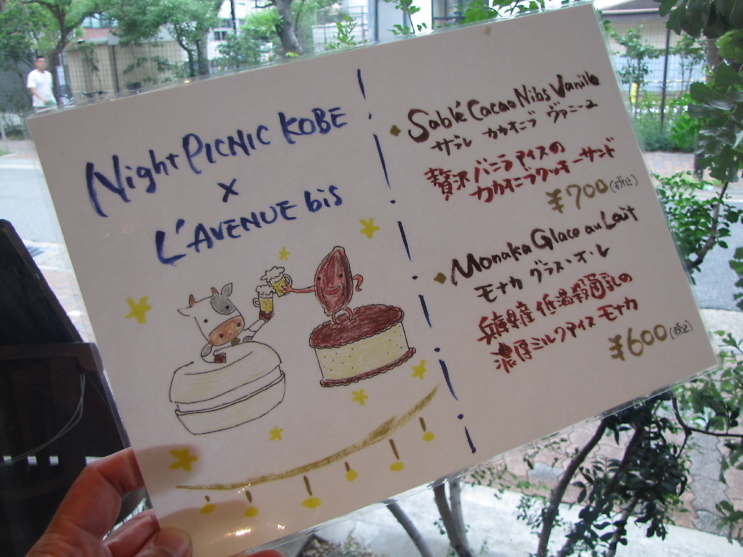 Night PICNIC KOBE
×
L'AVENUE bis
Sablé Cacao Nibs Vanille
サブレ カカオニブ ヴァニーユ
贅沢バニラアイスの
カカオニブクッキーサンド
¥700(税込)
Monaka Glace au Lait
モナカ グラス・オ・レ
兵庫県産 低温殺菌乳の
濃厚ミルクアイスモナカ
¥600(税込)